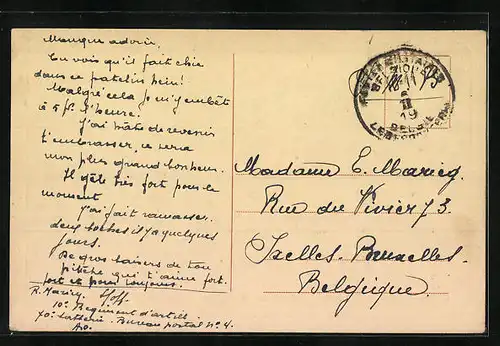 Manque advir,
Tu vois qu'il fait chic
dans ce patelin hein!
Malgré cela je m'embête
à 5 fs. l'heure.
J'ai hâte de revenir
t'embrasser, ce sera
mon plus grand bonheur.
Il gèle très fort pour le
moment
J'ai fait ramasser
deux boches il y a quelques
jours.
De gros baisers de ton
pitche qui t'aime fort.
fort et pour toujours.
R. Maricq.
10e Regiment d'artie
40e batterie. Bureau postal No 4.
BELGIE
LEGERPOSTERIJ
II
19
Madame E. Maricq.
Rue du Vivier 73.
Ixelles. Bruxelles.
Belgique.